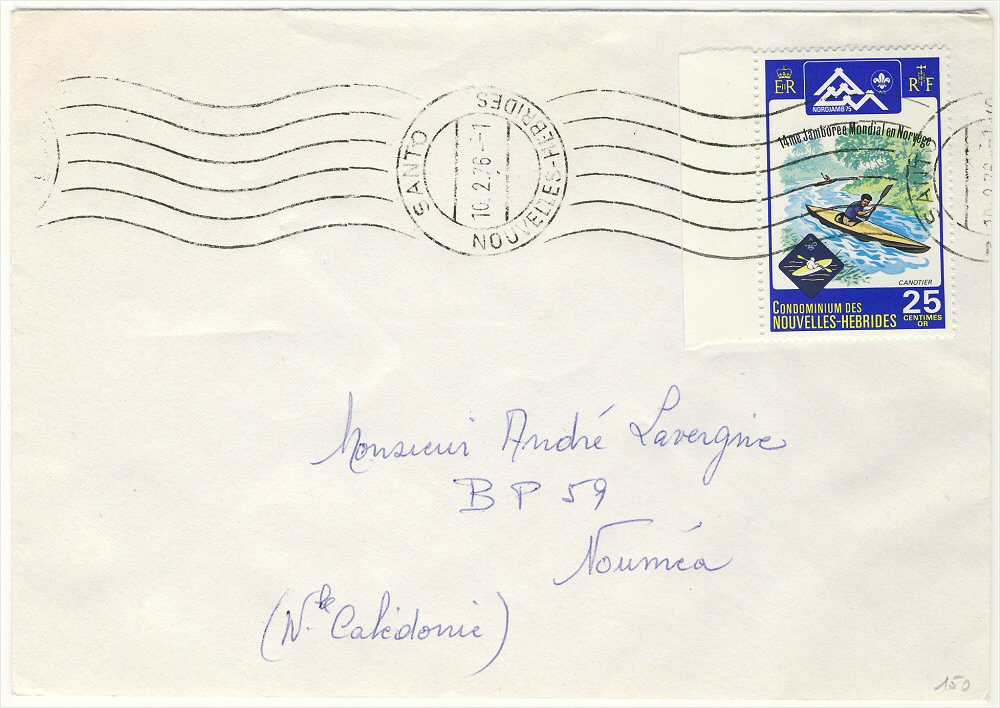 SANTO
10.2.76.-1
NOUVELLES-HEBRIDES
E II R
RF
NORDJAMB 75
14me Jamboree Mondial en Norvège
CANOTIER
CONDOMINIUM DES
NOUVELLES-HEBRIDES
25
CENTIMES
OR
SANT
10.2.76.-1
Monsieur André Lavergne
BP 59
Nouméa
(Nlle Calédonie)
150